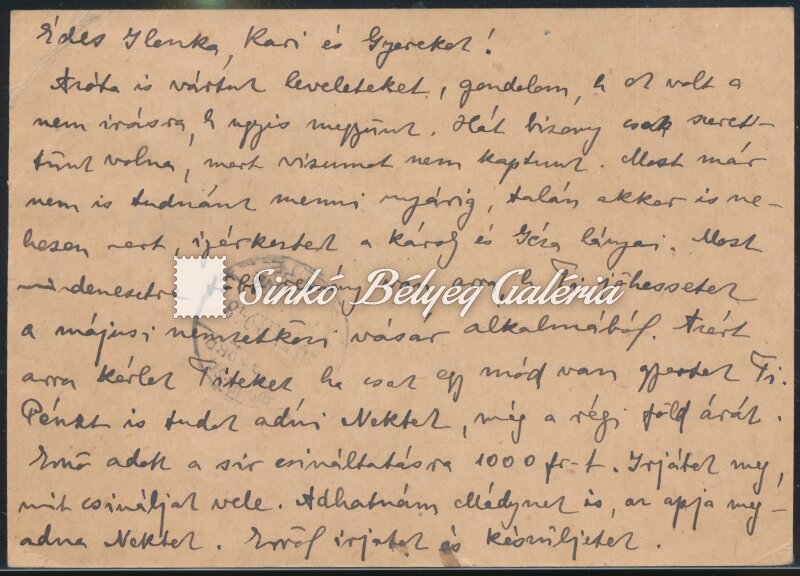 Édes Ilonka, Kari és Gyerekek!
Azóta is vártuk leveleteket, gondolom, h ok volt a
nem irásra, h ugyis megyünk. Hát bizony csak szeret-
tünk volna, mert vizumot nem kaptunk. Most már
nem is tudnánk menni nyárig, talán akkor is ne-
hezen mert, igérkeztek a Károly és Géza lányai. Most
mindenesetre több remény van arra h Ti jöhessetek
a májusi nemzetközi vásár alkalmából. Azért
arra kérlek Titeket ha csak egy mód van gyertek Ti.
Pénzt is tudok adni Nektek, még a régi föld árát.
Ernő adok a sir csináltatásra 1000 fr-t. Irjátok meg,
mit csináljak vele. Adhatnám Médynek is, az apja meg-
adna Nektek. Erről irjatok és készüljetek.
Sinkó Bélyeg Galéria